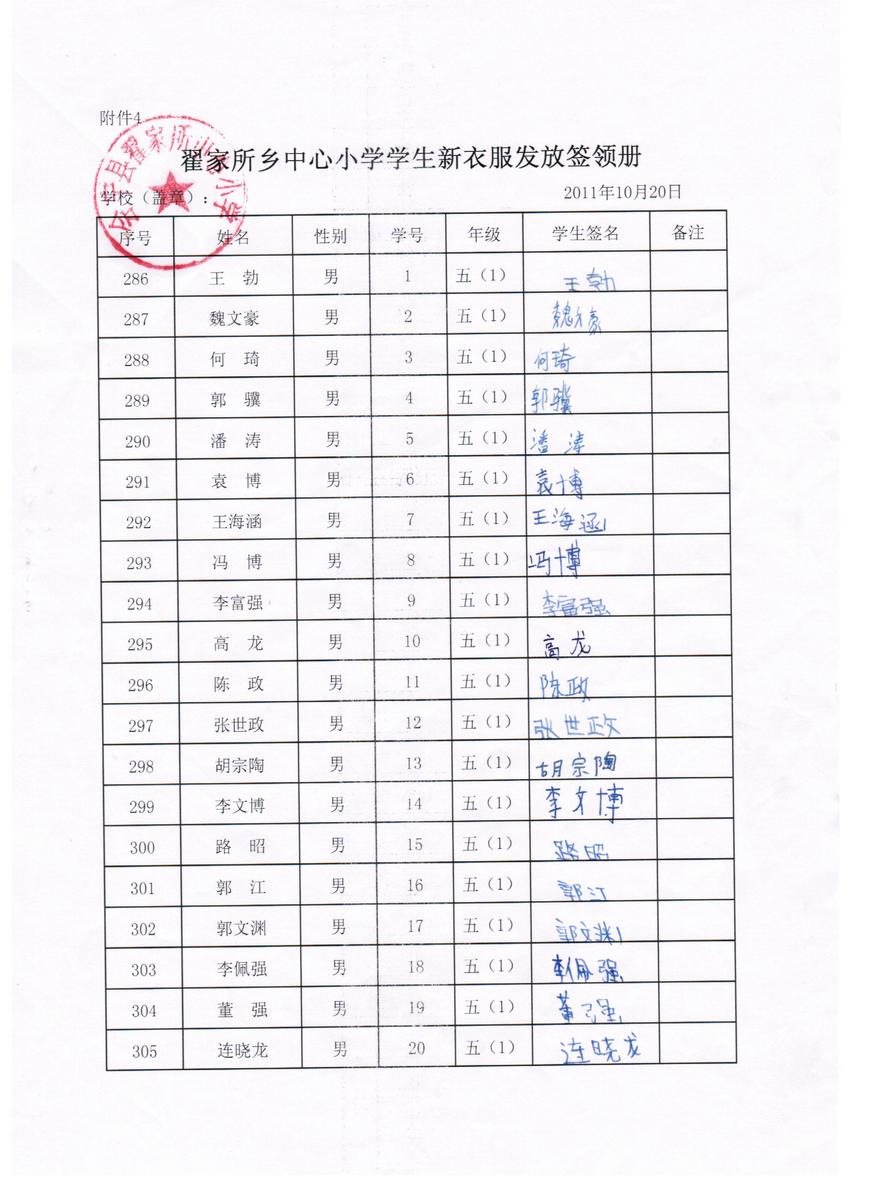 附件4
翟家所乡中心小学学生新衣服发放签领册
学校（盖章）： 2011年10月20日
序号 姓名 性别 学号 年级 学生签名 备注
286 王 勃 男 1 五（1） 王勃
287 魏文豪 男 2 五（1） 魏文豪
288 何 琦 男 3 五（1） 何琦
289 郭 骥 男 4 五（1） 郭骥
290 潘 涛 男 5 五（1） 潘涛
291 袁 博 男 6 五（1） 袁博
292 王海涵 男 7 五（1） 王海涵
293 冯 博 男 8 五（1） 冯博
294 李富强 男 9 五（1） 李富强
295 高 龙 男 10 五（1） 高龙
296 陈 政 男 11 五（1） 陈政
297 张世政 男 12 五（1） 张世政
298 胡宗陶 男 13 五（1） 胡宗陶
299 李文博 男 14 五（1） 李文博
300 路 昭 男 15 五（1） 路昭
301 郭 江 男 16 五（1） 郭江
302 郭文渊 男 17 五（1） 郭文渊
303 李佩强 男 18 五（1） 李佩强
304 董 强 男 19 五（1） 董强
305 连晓龙 男 20 五（1） 连晓龙